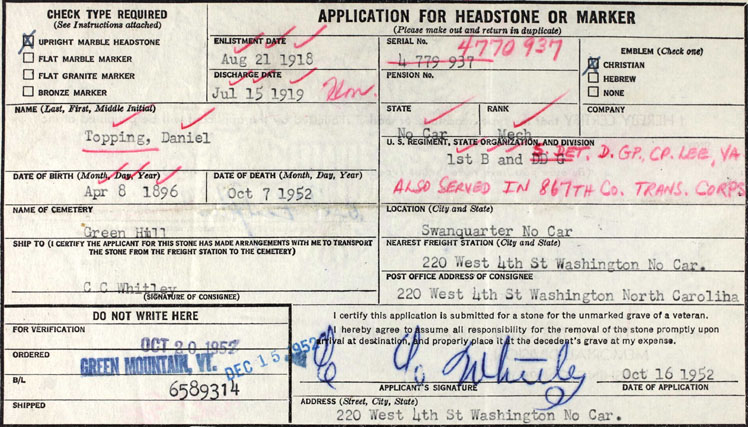 CHECK TYPE REQUIRED
(See Instructions attached)
UPRIGHT MARBLE HEADSTONE
FLAT MARBLE MARKER
FLAT GRANITE MARKER
BRONZE MARKER
APPLICATION FOR HEADSTONE OR MARKER
(Please make out and return in duplicate)
ENLISTMENT DATE
Aug 21 1918
DISCHARGE DATE
Jul 15 1919 Hon.
SERIAL No.
4770937
4 779 937
PENSION No.
EMBLEM (Check one)
CHRISTIAN
HEBREW
NONE
NAME (Last, First, Middle Initial)
Topping, Daniel
STATE
No Car
RANK
Mech
COMPANY
U. S. REGIMENT, STATE ORGANIZATION, AND DIVISION
1st B and DB G S DET. D. GP, CP. LEE, VA
ALSO SERVED IN 867TH CO. TRANS. CORPS
DATE OF BIRTH (Month, Day, Year)
Apr 8 1896
DATE OF DEATH (Month, Day, Year)
Oct 7 1952
NAME OF CEMETERY
Green Hill
LOCATION (City and State)
Swanquarter No Car
SHIP TO (I CERTIFY THE APPLICANT FOR THIS STONE HAS MADE ARRANGEMENTS WITH ME TO TRANSPORT
THE STONE FROM THE FREIGHT STATION TO THE CEMETERY)
C C Whitley
(SIGNATURE OF CONSIGNEE)
NEAREST FREIGHT STATION (City and State)
220 West 4th St Washington No Car.
POST OFFICE ADDRESS OF CONSIGNEE
220 West 4th St Washington North Caroliha
DO NOT WRITE HERE
FOR VERIFICATION
OCT 20 1952
ORDERED
GREEN MOUNTAIN, VT. DEC 15 1952
B/L
6589314
SHIPPED
I certify this application is submitted for a stone for the unmarked grave of a veteran.
I hereby agree to assume all responsibility for the removal of the stone promptly upon
arrival at destination, and properly place it at the decedent's grave at my expense.
C C Whitley
APPLICANT'S SIGNATURE
Oct 16 1952
DATE OF APPLICATION
ADDRESS (Street, City, State)
220 West 4th St Washington No Car.